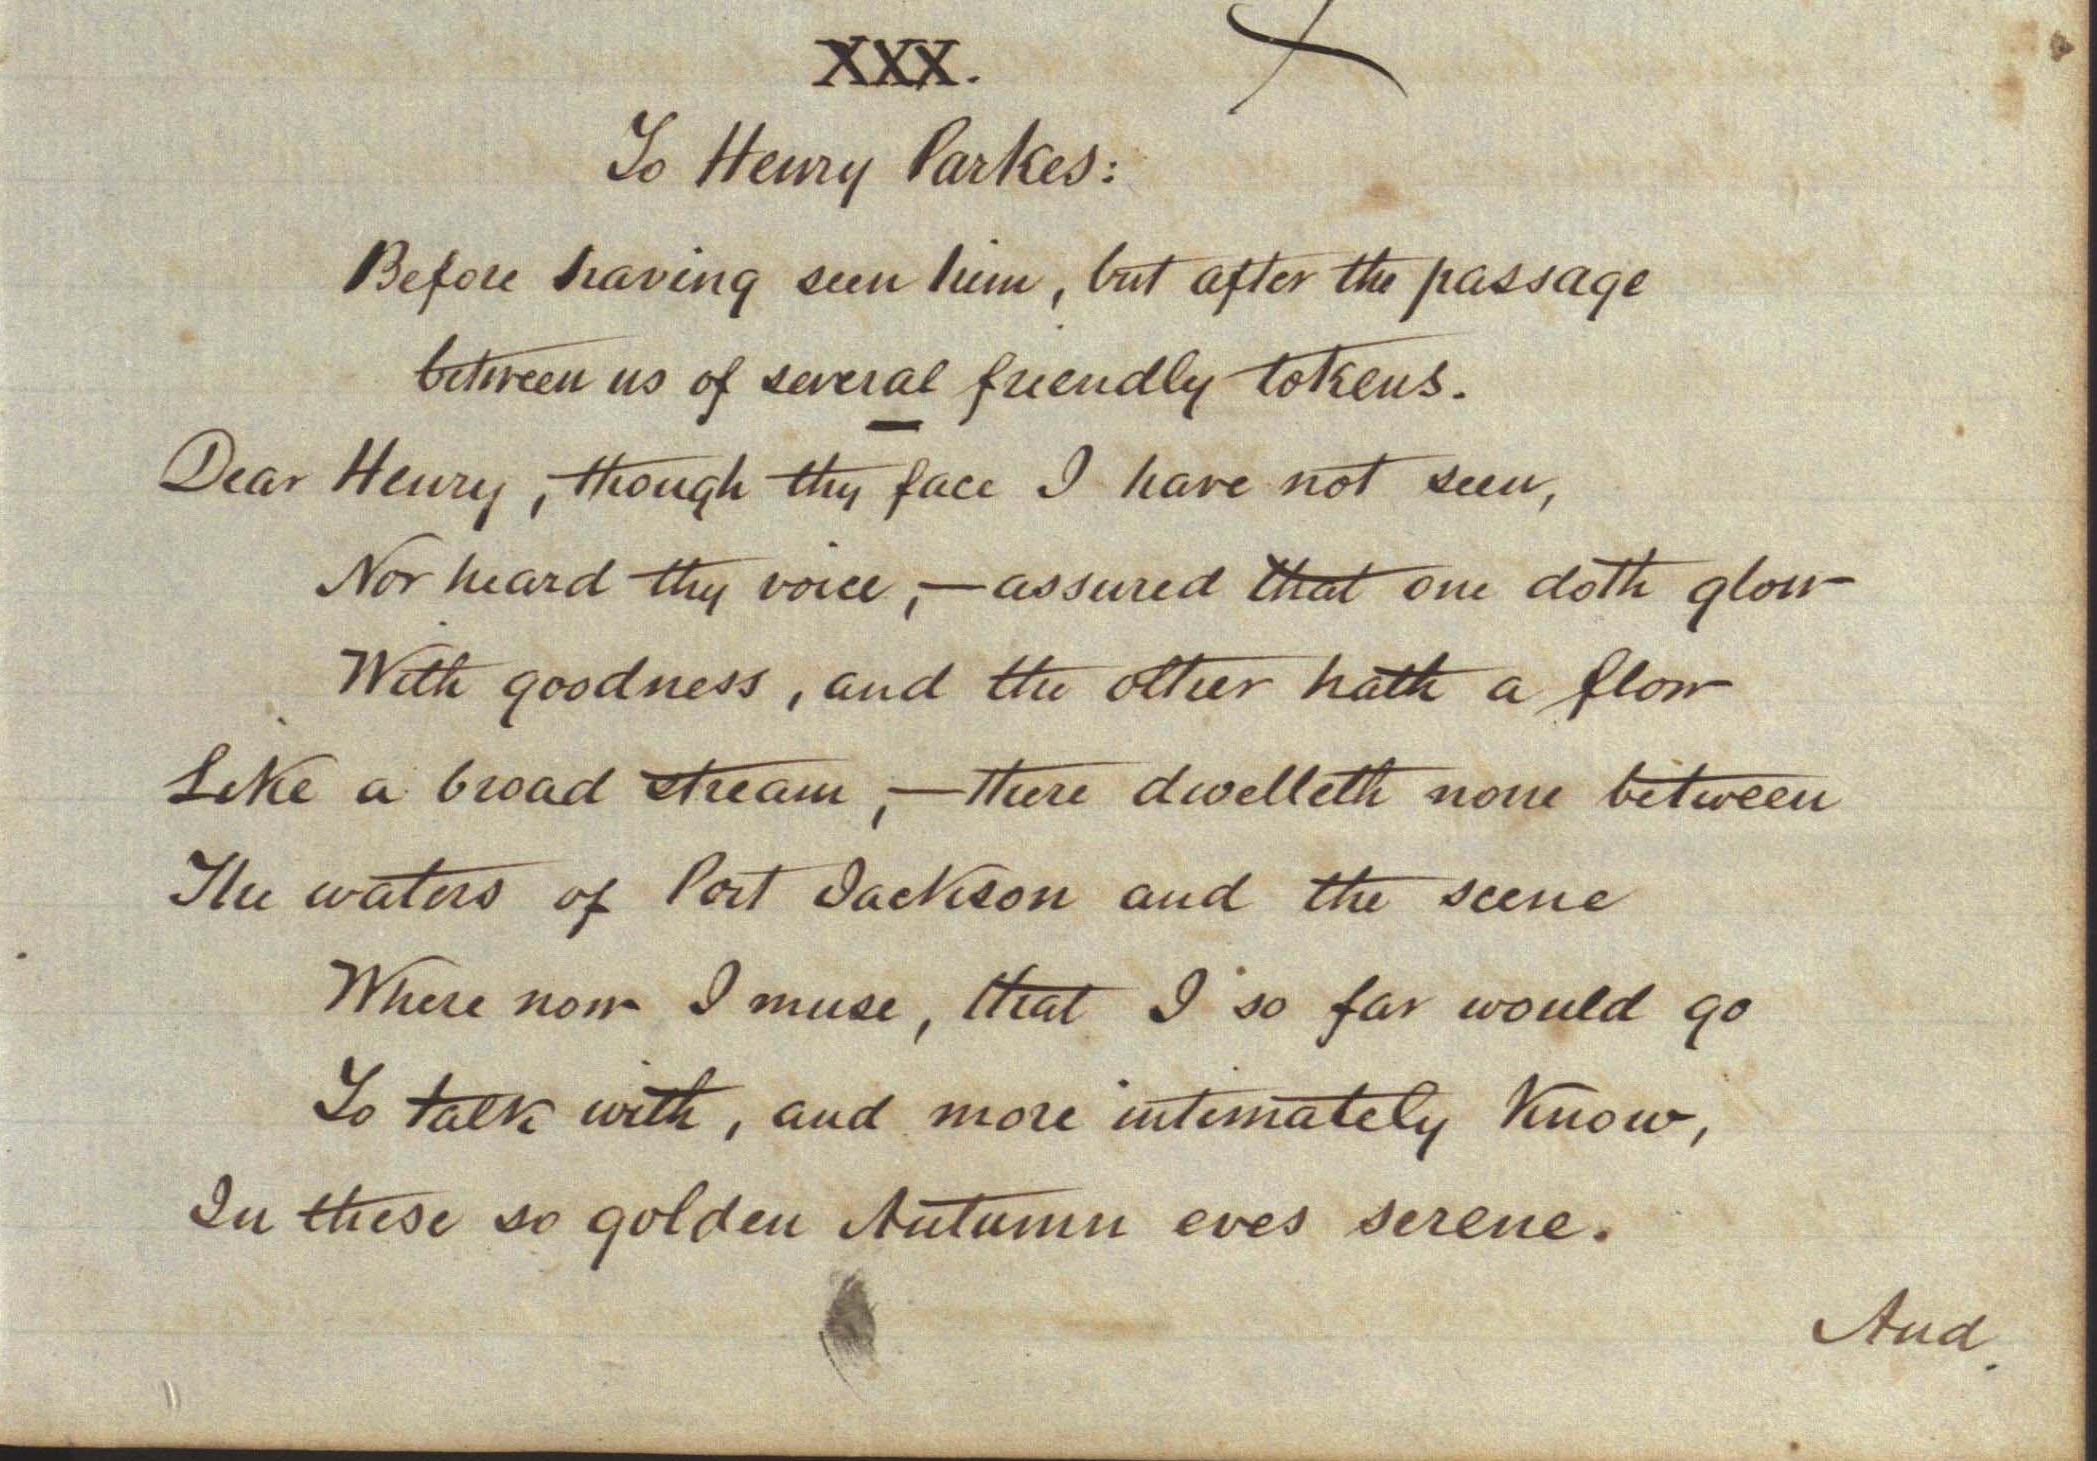 XXX.
To Henry Parkes:
Before having seen him, but after the passage
between us of several friendly tokens.
Dear Henry, though thy face I have not seen,
Nor heard thy voice,—assured that one doth glow
With goodness, and the other hath a flow
Like a broad stream,—there dwelleth none between
The waters of Port Jackson and the scene
Where now I muse, that I so far would go
To talk with, and more intimately know,
In these so golden Autumn eves serene.
And